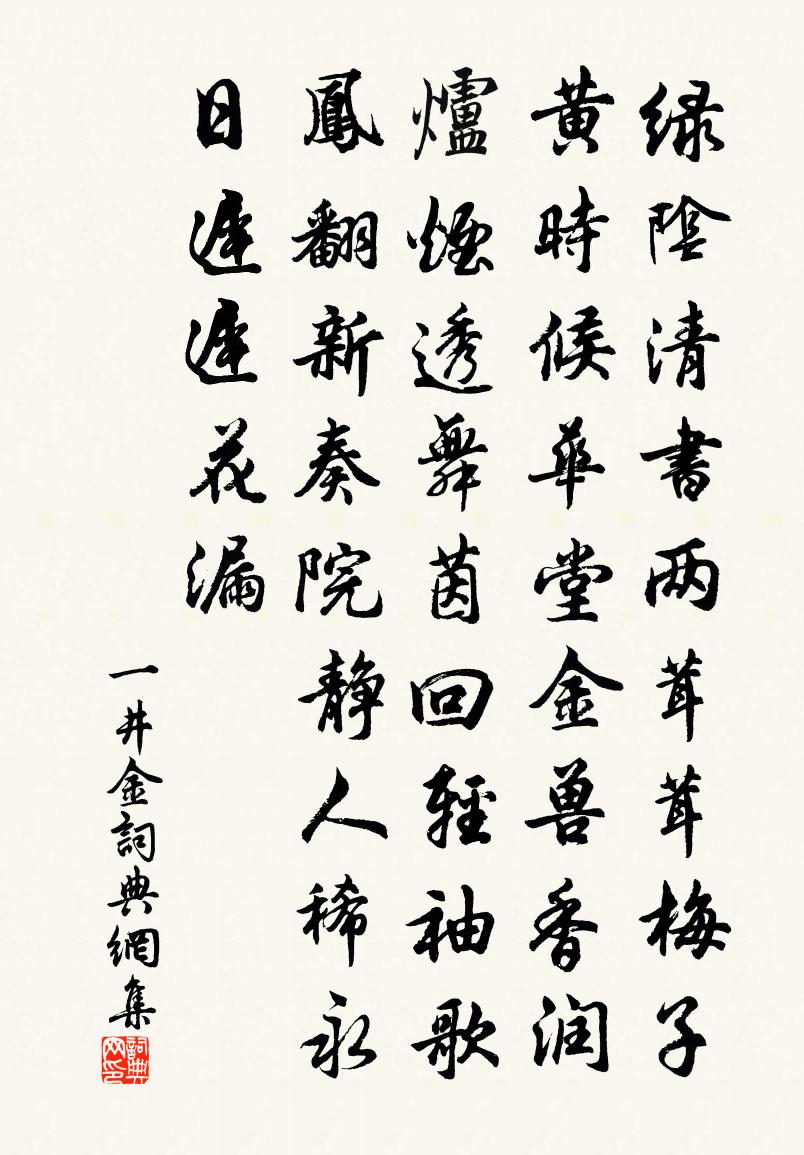 绿陰清書两茸茸梅子
黄時候華堂金兽香润
爐煙透舞茵回輕袖歌
鳳翻新奏院静人稀永
日遲遲花漏
一井金詞典網集
詞典网印